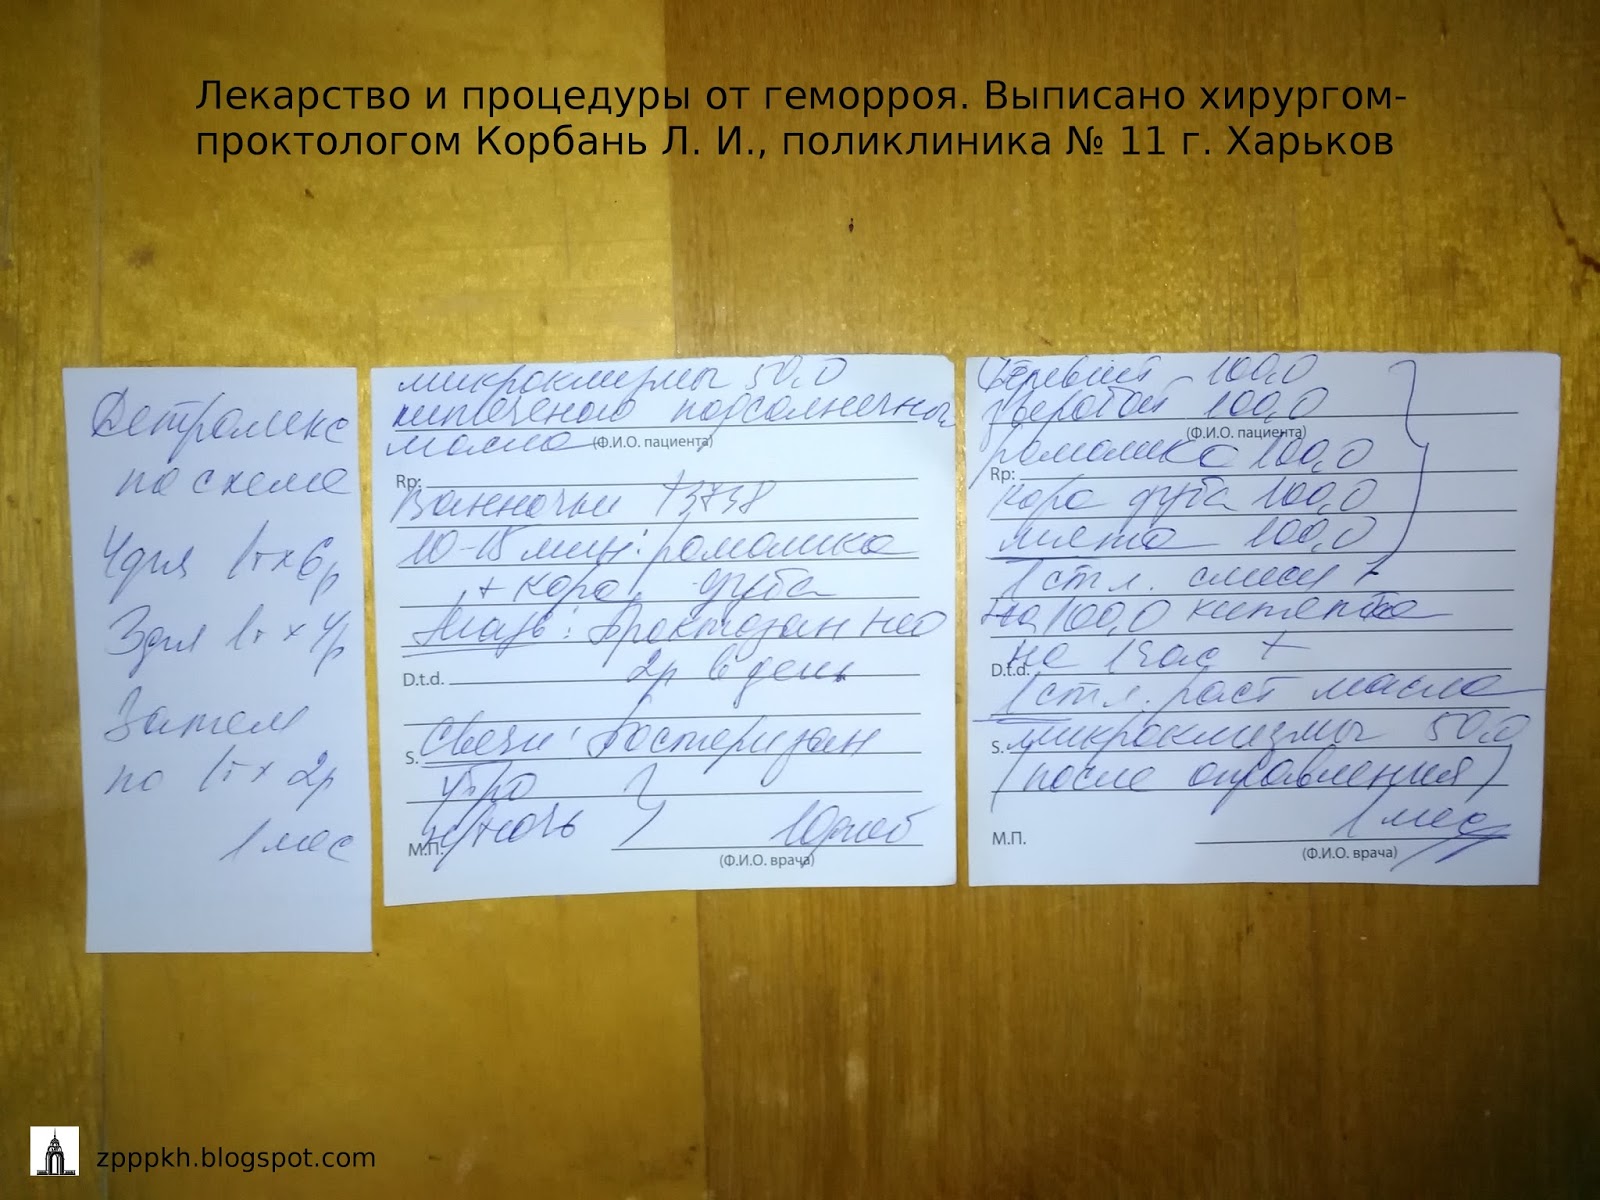 Лекарство и процедуры от геморроя. Выписано хирургом-
проктологом Корбань Л. И., поликлиника № 11 г. Харьков
Детралекс
по схеме
4 дня 1т х 6р
3 дня 1т х 4р
Затем
по 1т х 2р
1 мес
микроклизмы 50,0
кипяченого подсолнечного
масла
(Ф.И.О. пациента)
Rp:
Ванночки
10-15 мин: ромашка
+ кора дуба
Мазь: Проктозан нео
D.t.d.
2р в день
S.
Свечи: Постеризан
утро
н/ночь
10
М.П.
(Ф.И.О. врача)
100,0
зверобой 100,0
(Ф.И.О. пациента)
ромашка 100,0
Rp:
кора дуба 100,0
мята 100,0
1 ст л. смеси +
на 100,0 кипятка
на 1 час +
D.t.d.
1 ст л. раст масла
S.
микроклизмы 50,0
(после оправления)
1 мес
М.П.
(Ф.И.О. врача)
zpppkh.blogspot.com